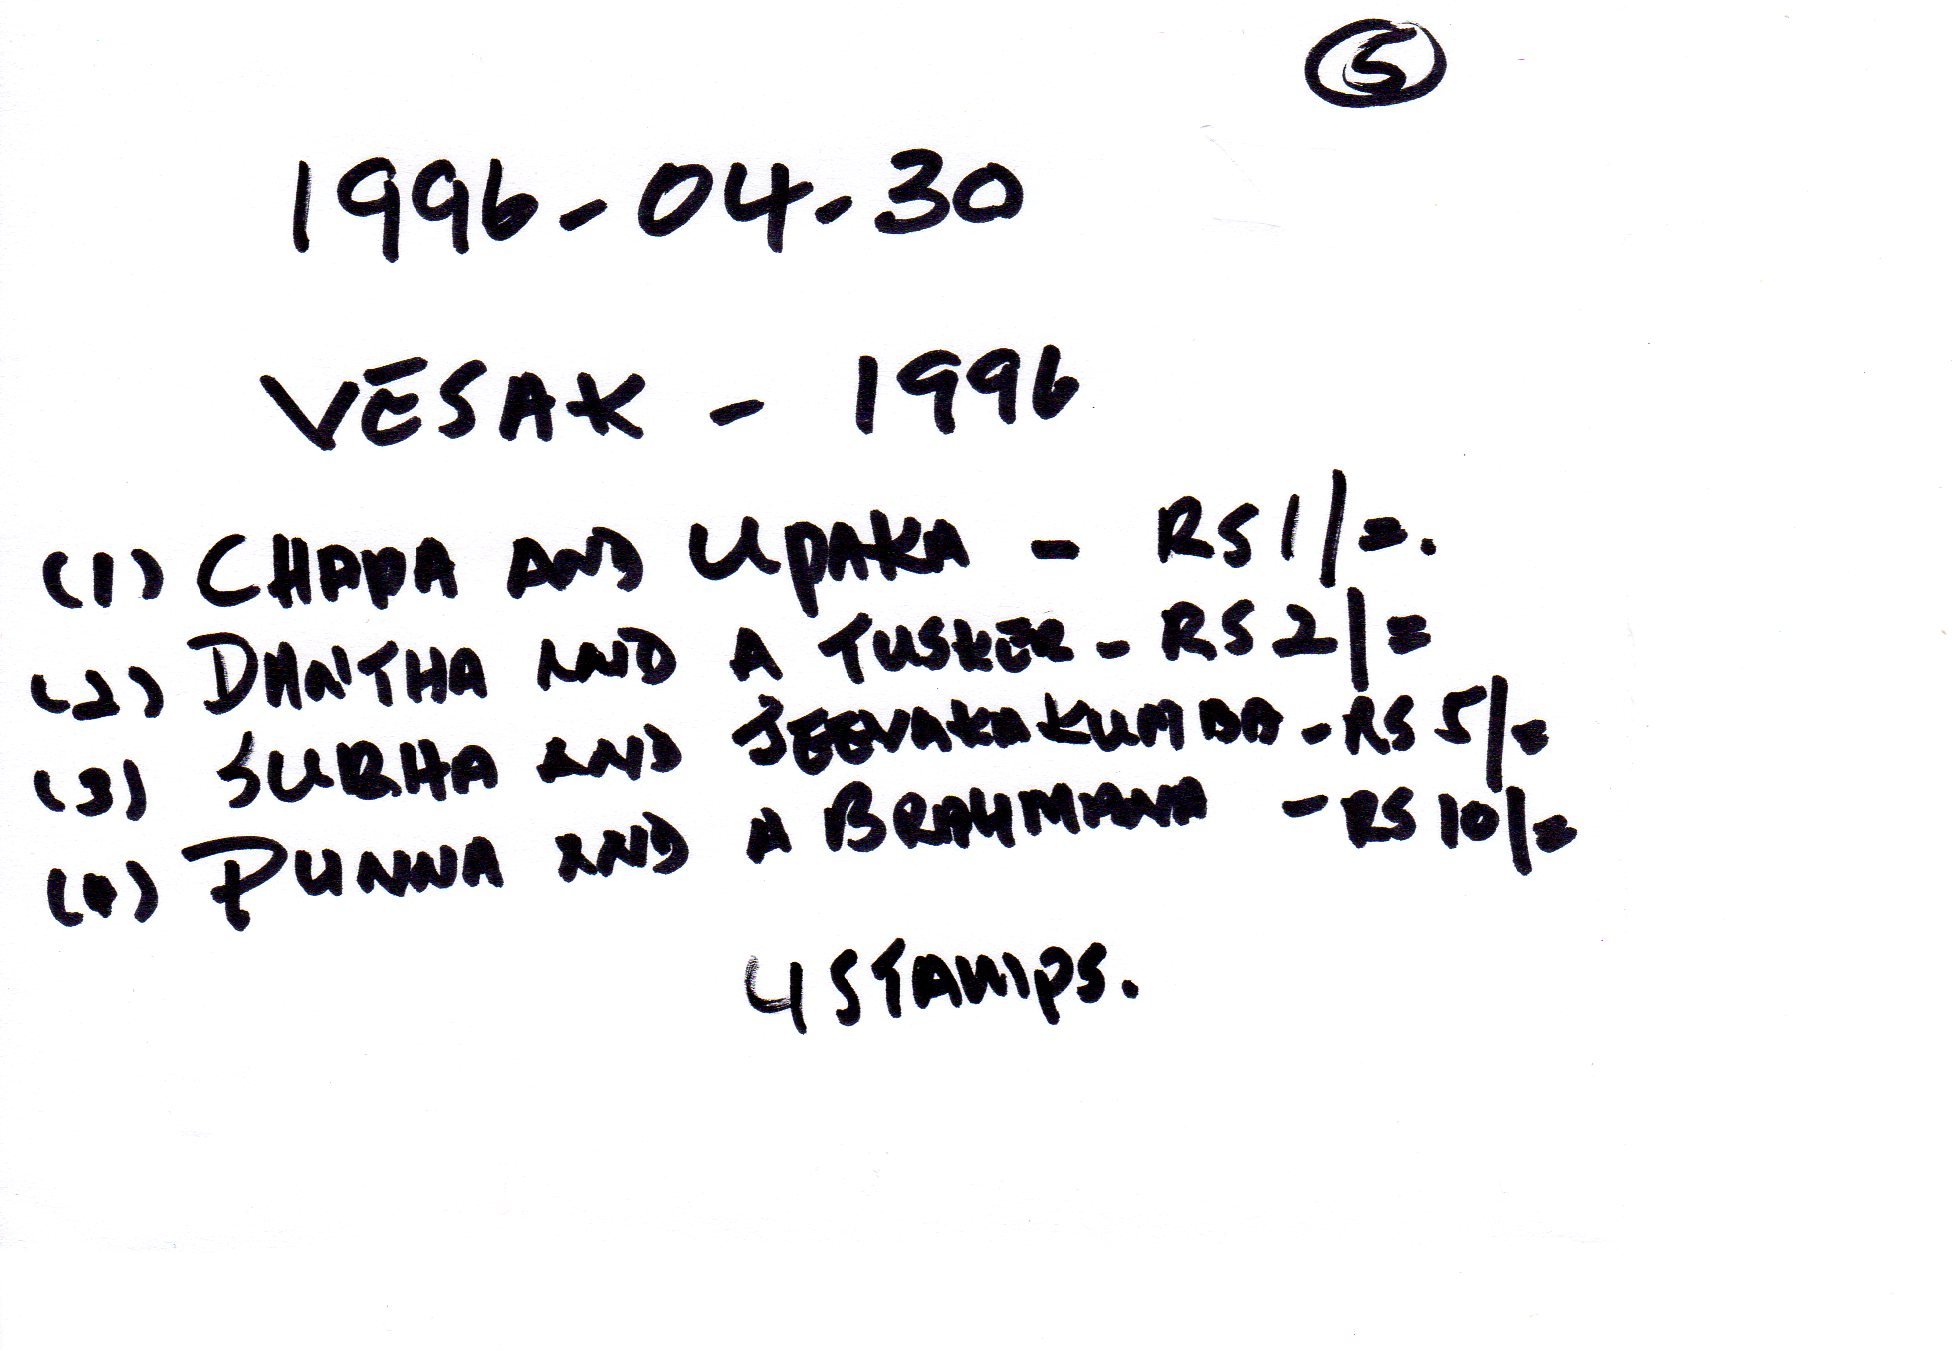 5
1996-04-30
VĒSAK - 1996
(1) CHAPA AND UPAKA - RS 1/=.
(2) DHNTHA AND A TUSKER - RS 2/=
(3) SUBHA AND JEEVAKAKUMBA - RS 5/=
(4) PUNNA AND A BRAHMANA - RS 10/=
4 STAMPS.